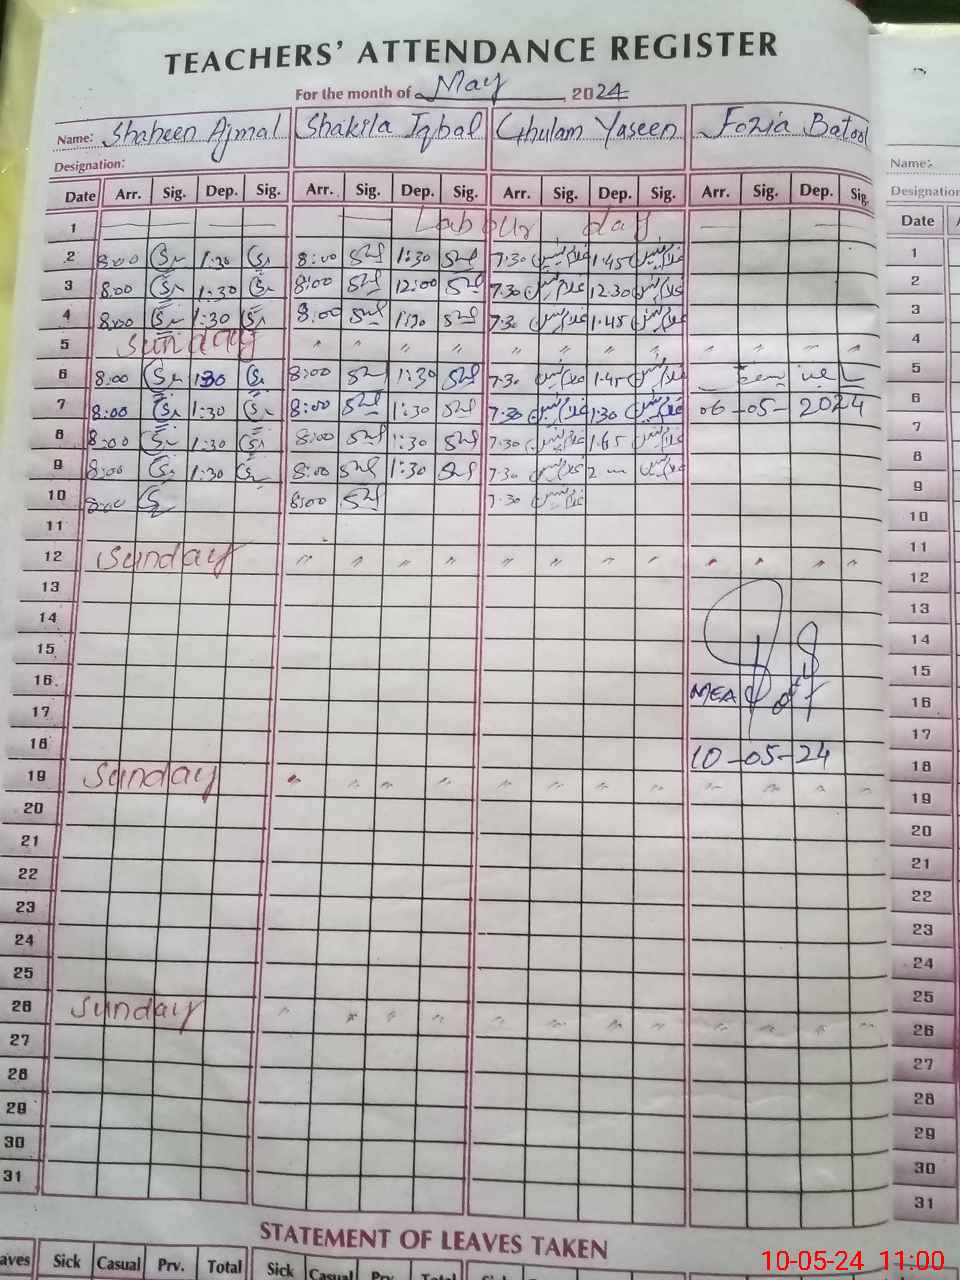 TEACHERS' ATTENDANCE REGISTER
For the month of May, 2024
Name: Shaheen Ajmal Shakila Iqbal Ghulam Yaseen Fozia Batool
Name:
Designation:
Designation
Date Arr. Sig. Dep. Sig. Arr. Sig. Dep. Sig. Arr. Sig. Dep. Sig. Arr. Sig. Dep. Sig. Date
1 Labour day
2 8:00 1:30 8:00 1:30 7.30 غلام یٰسین 1.45 غلام یٰسین 1
3 8:00 1:30 8:00 12:00 7.30 غلام یٰسین 12.30 غلام یٰسین 2
4 8:00 1:30 8:00 1:30 7.30 غلام یٰسین 1.45 غلام یٰسین 3
5 Sunday " " " " " " " " " " " " 4
6 8:00 1:30 8:00 1:30 7.30 غلام یٰسین 1.45 غلام یٰسین 5
7 8:00 1:30 8:00 1:30 7.30 غلام یٰسین 1.30 غلام یٰسین 06-05-2024 6
8 8:00 1:30 8:00 1:30 7.30 غلام یٰسین غلام یٰسین 7
9 8:00 1:30 8:00 1:30 7.30 غلام یٰسین 2 غلام یٰسین 8
10 8:00 8:00 7.30 غلام یٰسین 9
11 10
12 Sunday " " " " " " " " " " " " 11
13 12
14 13
15 14
16 MEA 15
17 16
18 10-05-24 17
19 Sunday " " " " " " " " " " " " 18
20 19
21 20
22 21
23 22
24 23
25 24
26 Sunday " " " " " " " " " " " " 25
27 26
28 27
29 28
30 29
31 30
31
STATEMENT OF LEAVES TAKEN
aves Sick Casual Prv. Total Sick Casual Prv. Total Sick
10-05-24 11:00